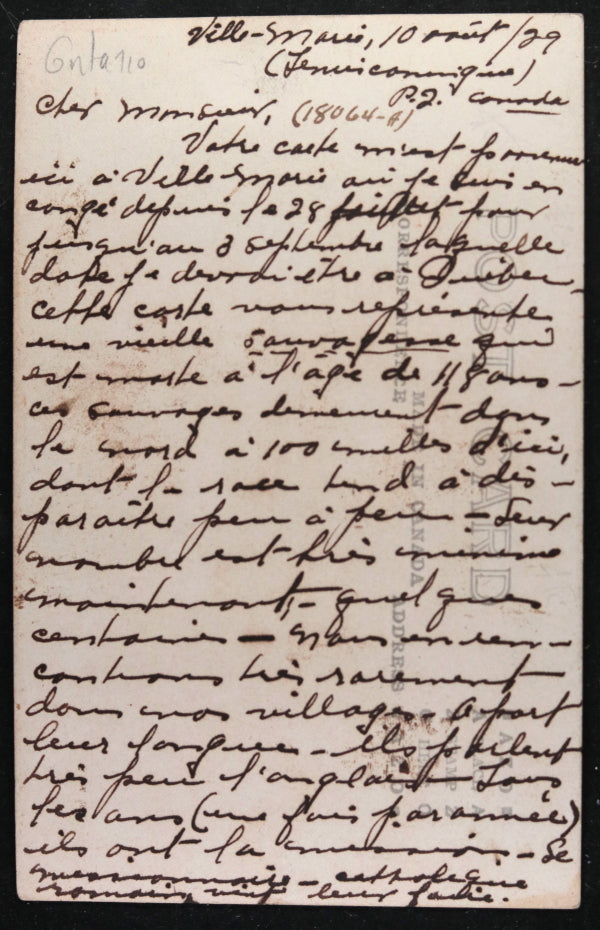 Ontario
Ville-Marie, 10 août/29
(Temiscamingue)
P.Q. Canada
Cher Monsieur, (18064-A)
Votre carte m'est parvenue
ici à Ville-Marie où je suis en
congé depuis le 28 juillet pour
jusqu'au 3 septembre laquelle
date je devrai être à Québec,
cette carte vous représente
une vieille sauvagesse qui
est morte à l'âge de 118 ans -
ces sauvages demeurent dans
le nord à 100 milles d'ici,
dont la race tend à dis-
paraître peu à peu - Leur
nombre est très minime
maintenant, - quelques
centaines - Nous en ren-
controns très rarement
dans nos villages - A part
leur langue - ils parlent
très peu l'anglais - Tous
les ans (une fois par année)
ils ont la mission - Le
missionnaire - catholique
romain, leur faire.
POST CARD
CORRESPONDENCE
MADE IN CANADA
ADDRESS